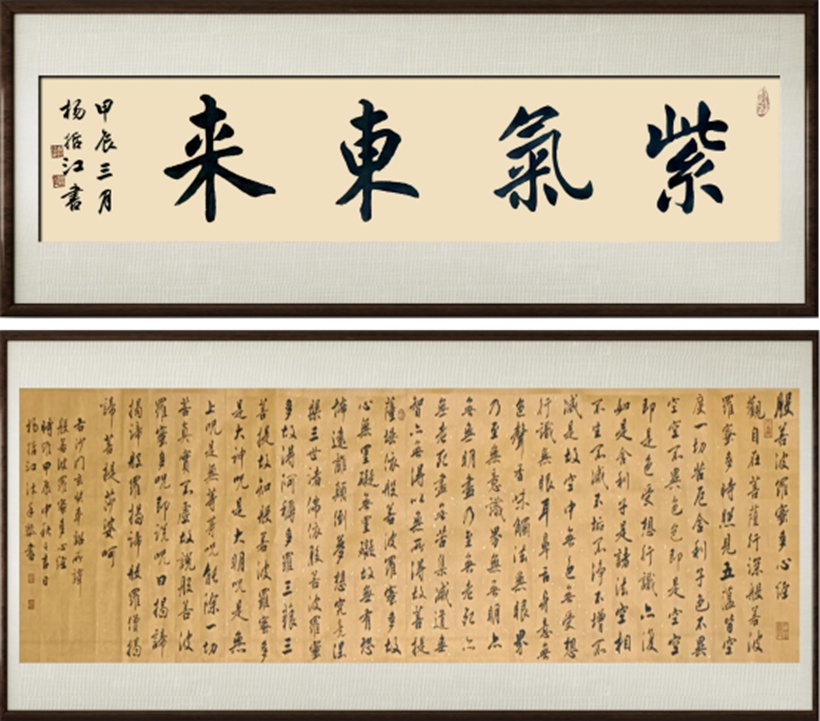 紫氣東来
甲辰三月
杨江書
般若波羅蜜多心經
觀自在菩薩行深般若波
羅蜜多時照見五蘊皆空
度一切苦厄舍利子色不異
空空不異色色即是空空
即是色受想行識亦復
如是舍利子是諸法空相
不生不滅不垢不淨不增不
減是故空中無色無受想
行識無眼耳鼻舌身意無
色聲香味觸法無眼界
乃至無意識界無無明亦
無無明盡乃至無老死亦
無老死盡無苦集滅道無
智亦無得以無所得故菩提
薩埵依般若波羅蜜多故
心無罣礙無罣礙故無有恐
怖遠離顛倒夢想究竟涅
槃三世諸佛依般若波羅蜜
多故得阿耨多羅三藐三
菩提故知般若波羅蜜多
是大神咒是大明咒是無
上咒是無等等咒能除一切
苦真實不虛故說般若波
羅蜜多咒即說咒曰揭諦
揭諦般羅揭諦般羅僧揭
諦菩提莎婆呵
右沙門玄奘奉詔所譯
般若波羅蜜多心經
甲辰中秋吉日
杨江沐手敬書